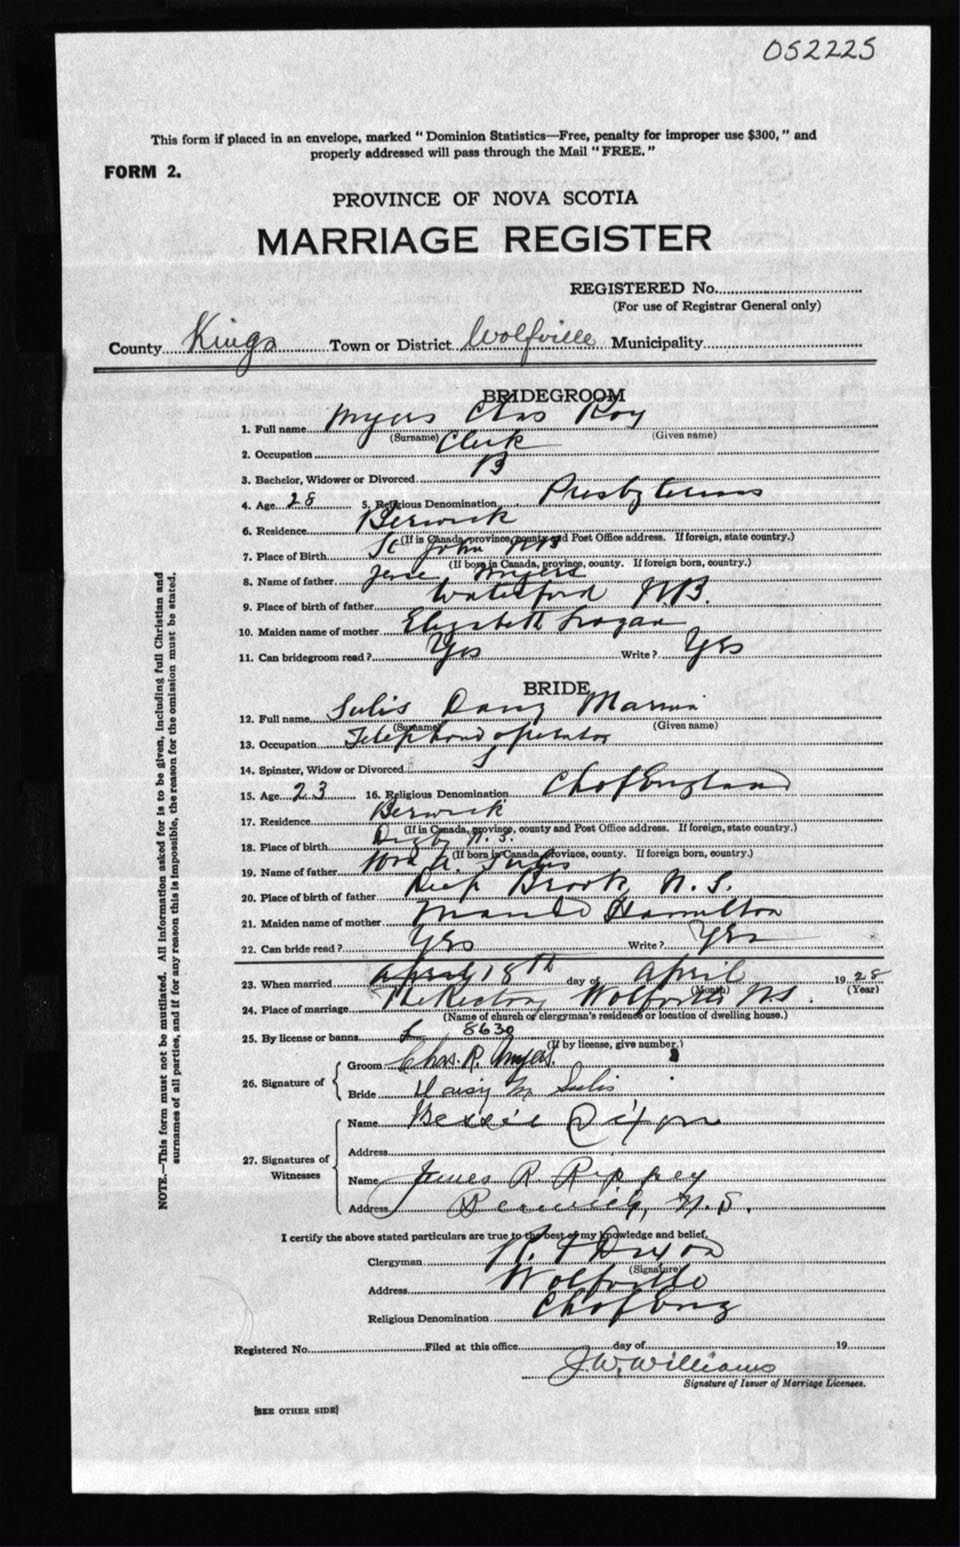 052225
This form if placed in an envelope, marked "Dominion Statistics—Free, penalty for improper use $300," and
properly addressed will pass through the Mail "FREE."
FORM 2.
PROVINCE OF NOVA SCOTIA
MARRIAGE REGISTER
REGISTERED No.
(For use of Registrar General only)
County Kings Town or District Wolfville Municipality
BRIDEGROOM
1. Full name Myers Chas Roy
(Surname) (Given name)
2. Occupation Clerk
3. Bachelor, Widower or Divorced B
4. Age 28 5. Religious Denomination Presbyterian
6. Residence Berwick
(If in Canada, province, county and Post Office address. If foreign, state country.)
7. Place of Birth St John NB
(If born in Canada, province, county. If foreign born, country.)
8. Name of father Myers
9. Place of birth of father Waterford N.B.
10. Maiden name of mother Elizabeth Logan
11. Can bridegroom read? Yes Write? Yes
BRIDE
12. Full name Sulis Daisy
(Surname) (Given name)
13. Occupation Telephone operator
14. Spinster, Widow or Divorced S
15. Age 23 16. Religious Denomination Ch of England
17. Residence Berwick
(If in Canada, province, county and Post Office address. If foreign, state country.)
18. Place of birth Digby N.S.
(If born in Canada, province, county. If foreign born, country.)
19. Name of father Wm A. Sulis
20. Place of birth of father Deep Brook, N.S.
21. Maiden name of mother Hamilton
22. Can bride read? Yes Write? Yes
23. When married April 18th day of April 1928
(Month) (Year)
24. Place of marriage The Rectory Wolfville NS.
(Name of church or clergyman's residence or location of dwelling house.)
25. By license or banns L 8630
(If by license, give number.)
26. Signature of
Groom Chas. R. Myers.
Bride Daisy M Sulis
27. Signatures of Witnesses
Name Bessie Dixon
Address
Name James R. Rippey
Address Berwick, N.S.
I certify the above stated particulars are true to the best of my knowledge and belief.
Clergyman R. F Dixon
(Signature)
Address Wolfville
Religious Denomination Ch of Eng
Registered No. Filed at this office day of 19
J.W. Williams
Signature of Issuer of Marriage Licenses.
[SEE OTHER SIDE]
NOTE.—This form must not be mutilated. All information asked for is to be given, including full Christian and
surnames of all parties, and if for any reason this is impossible, the reason for the omission must be stated.